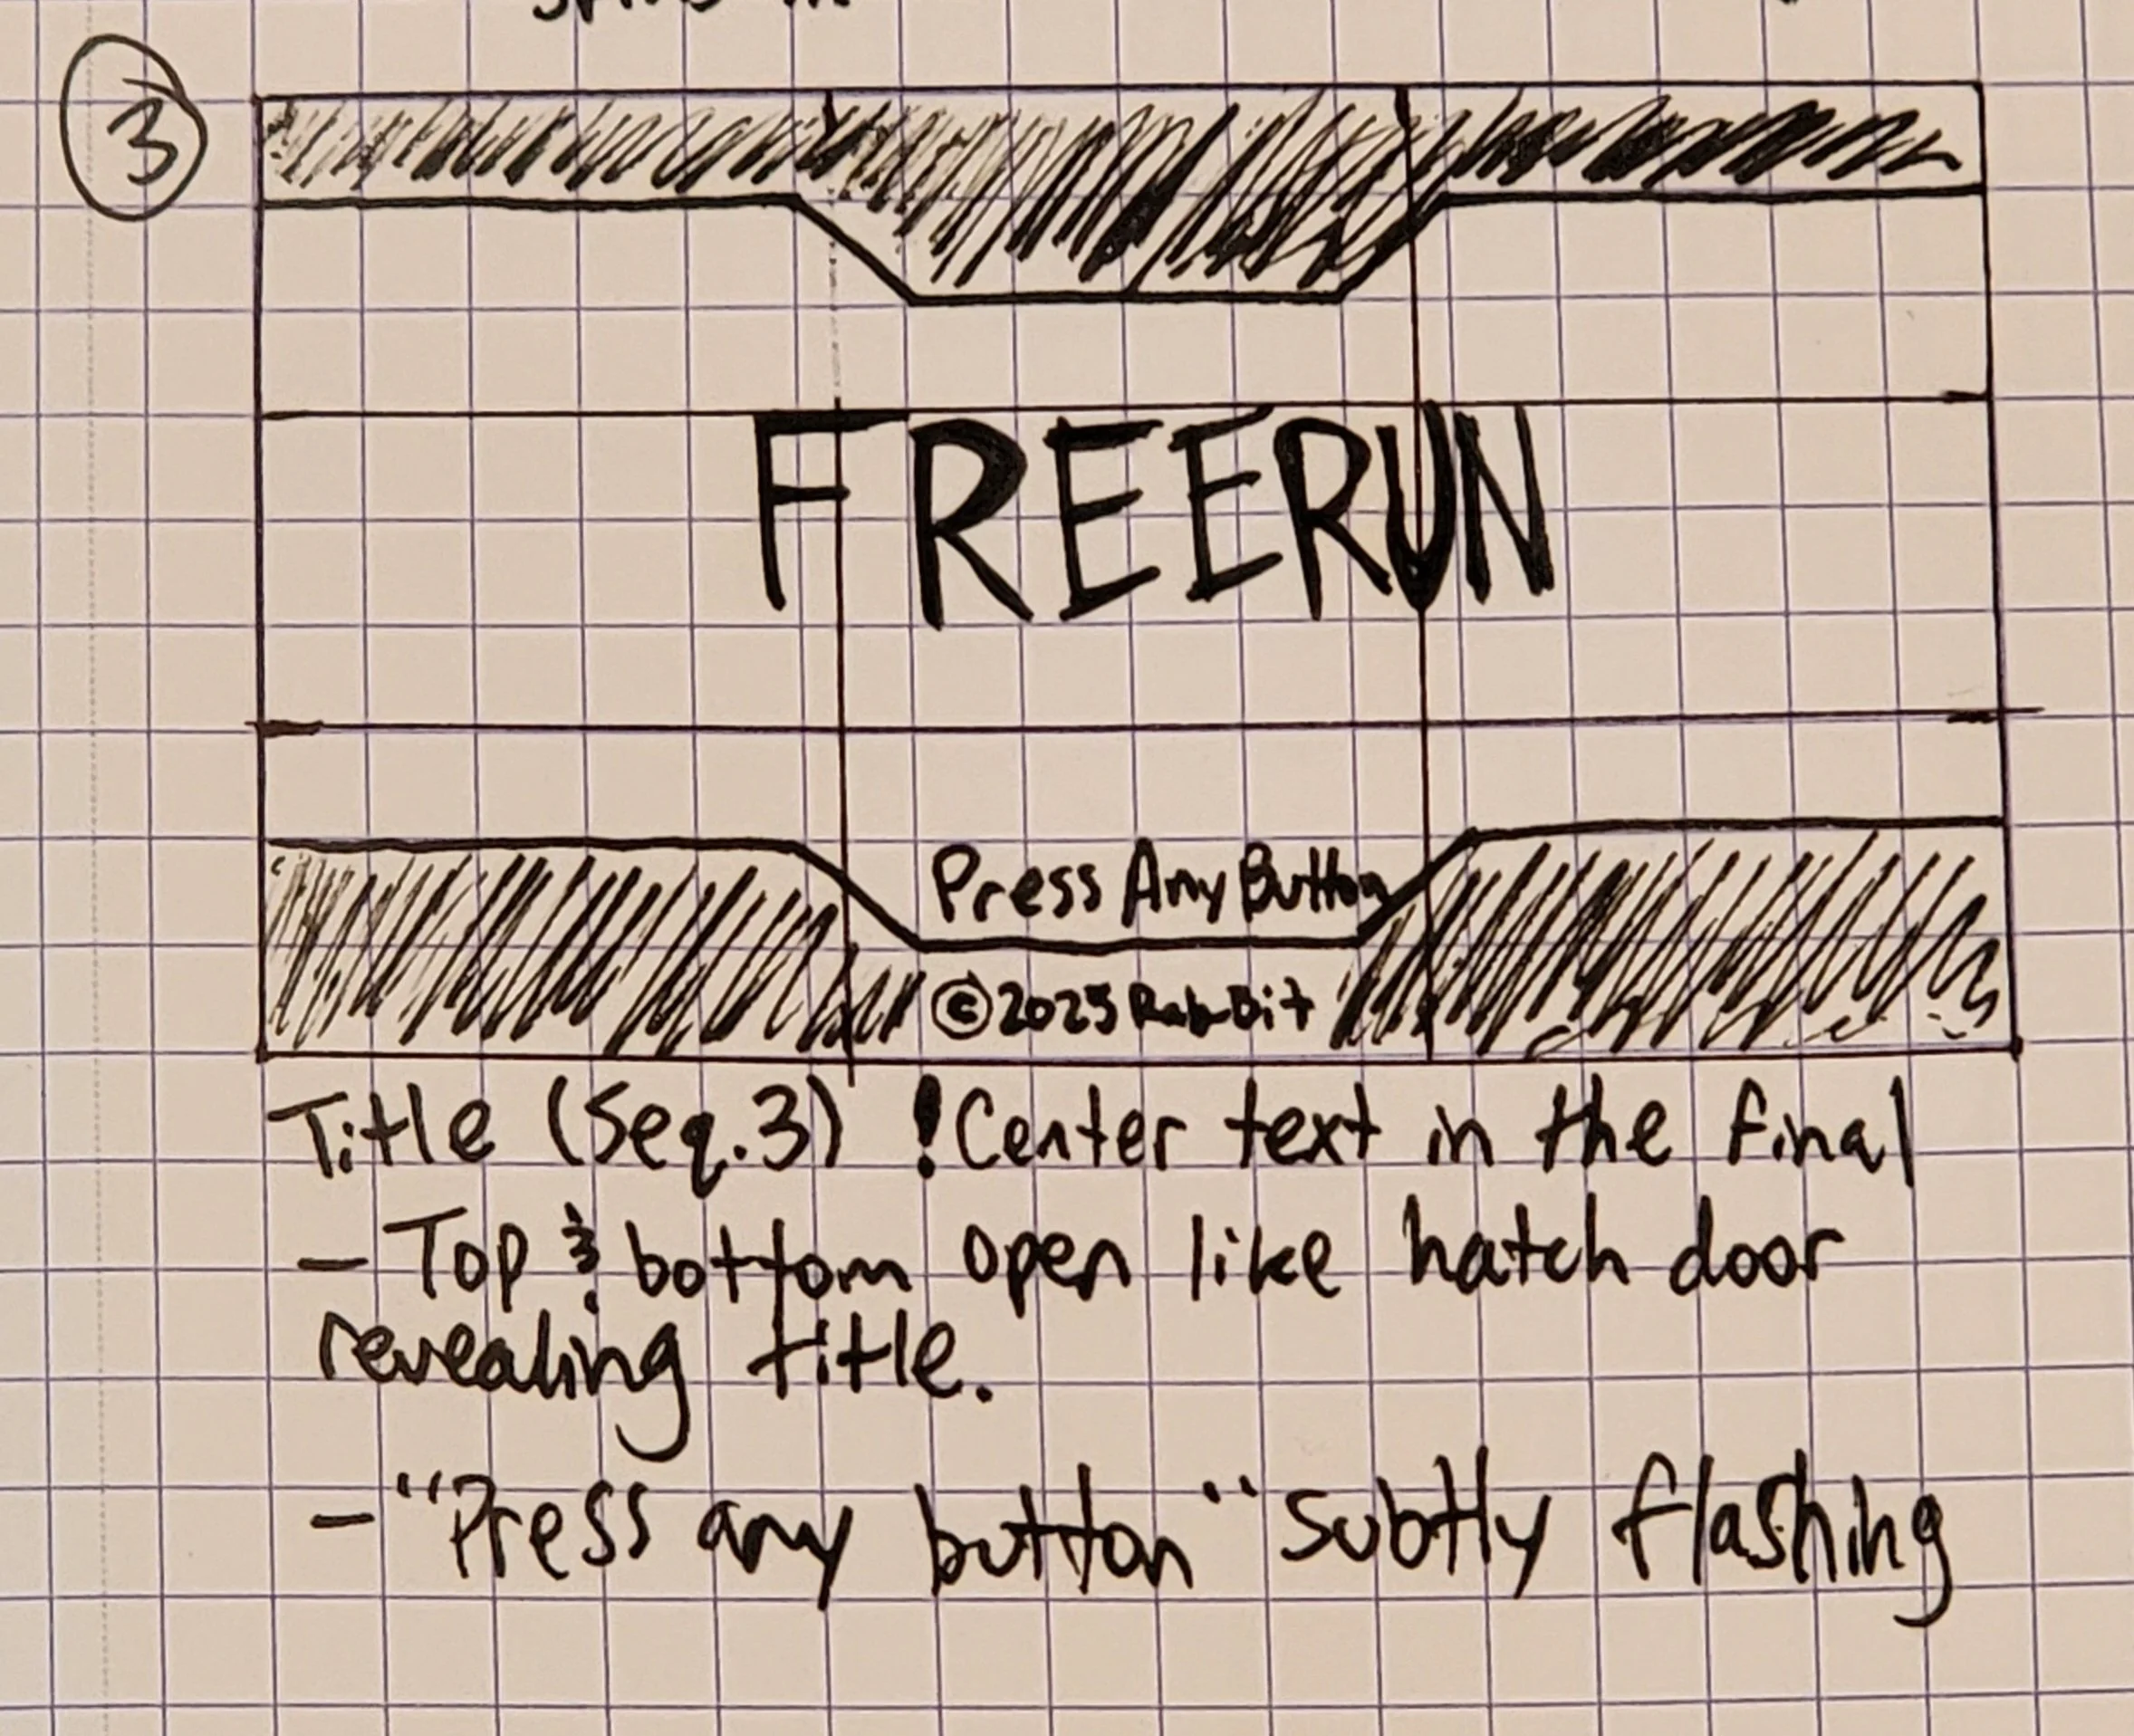 3
FREERUN
Press Any Button
©2025 RabBit
Title (Seq.3) !Center text in the final
- Top & bottom open like hatch door
revealing title.
- "Press any button" subtly flashing